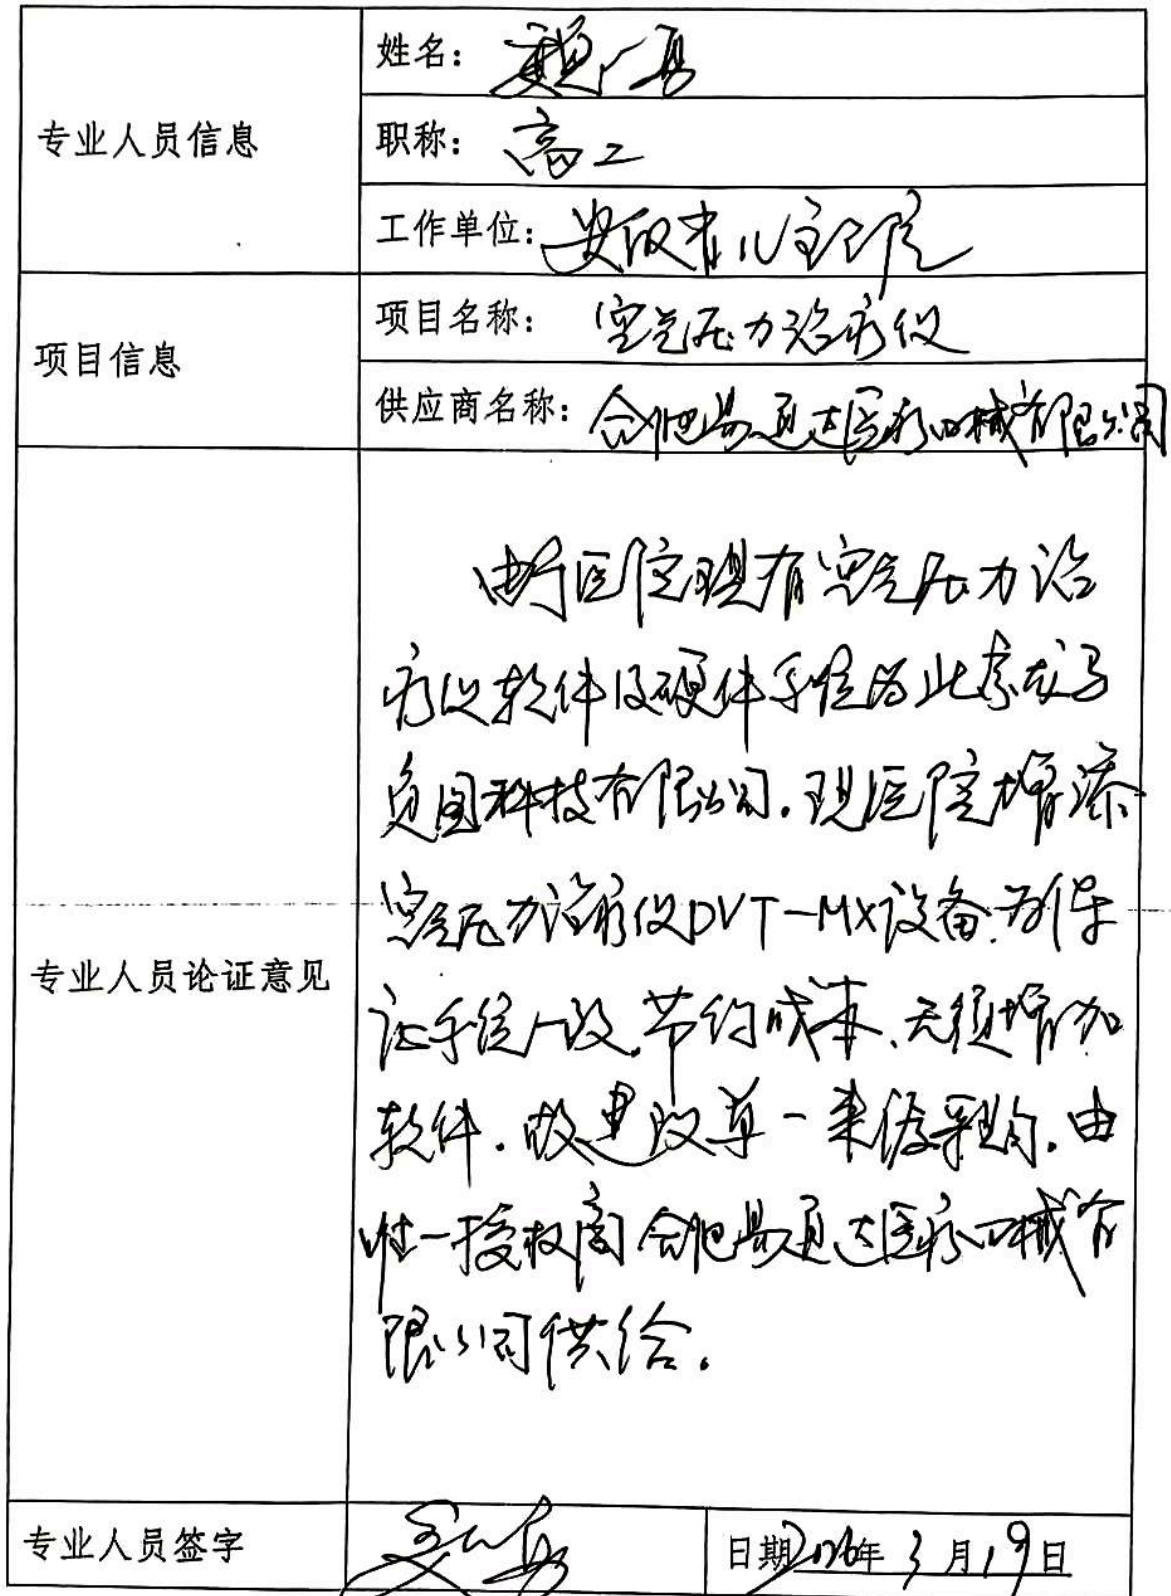 专业人员信息
姓名：
职称：高工
工作单位：安徽省儿童医院
项目信息
项目名称：空气压力治疗仪
供应商名称：合肥易通达医疗器械有限公司
专业人员论证意见
由于医院现有空气压力治
疗仪软件及硬件系统为北京龙马
负图科技有限公司.现医院增添
空气压力治疗仪DVT-MX设备.为保
证系统一致.节约成本、无须增加
软件.故建议单一来源采购.由
唯一授权商合肥易通达医疗器械有
限公司供给.
专业人员签字
日期 2026年3月19日